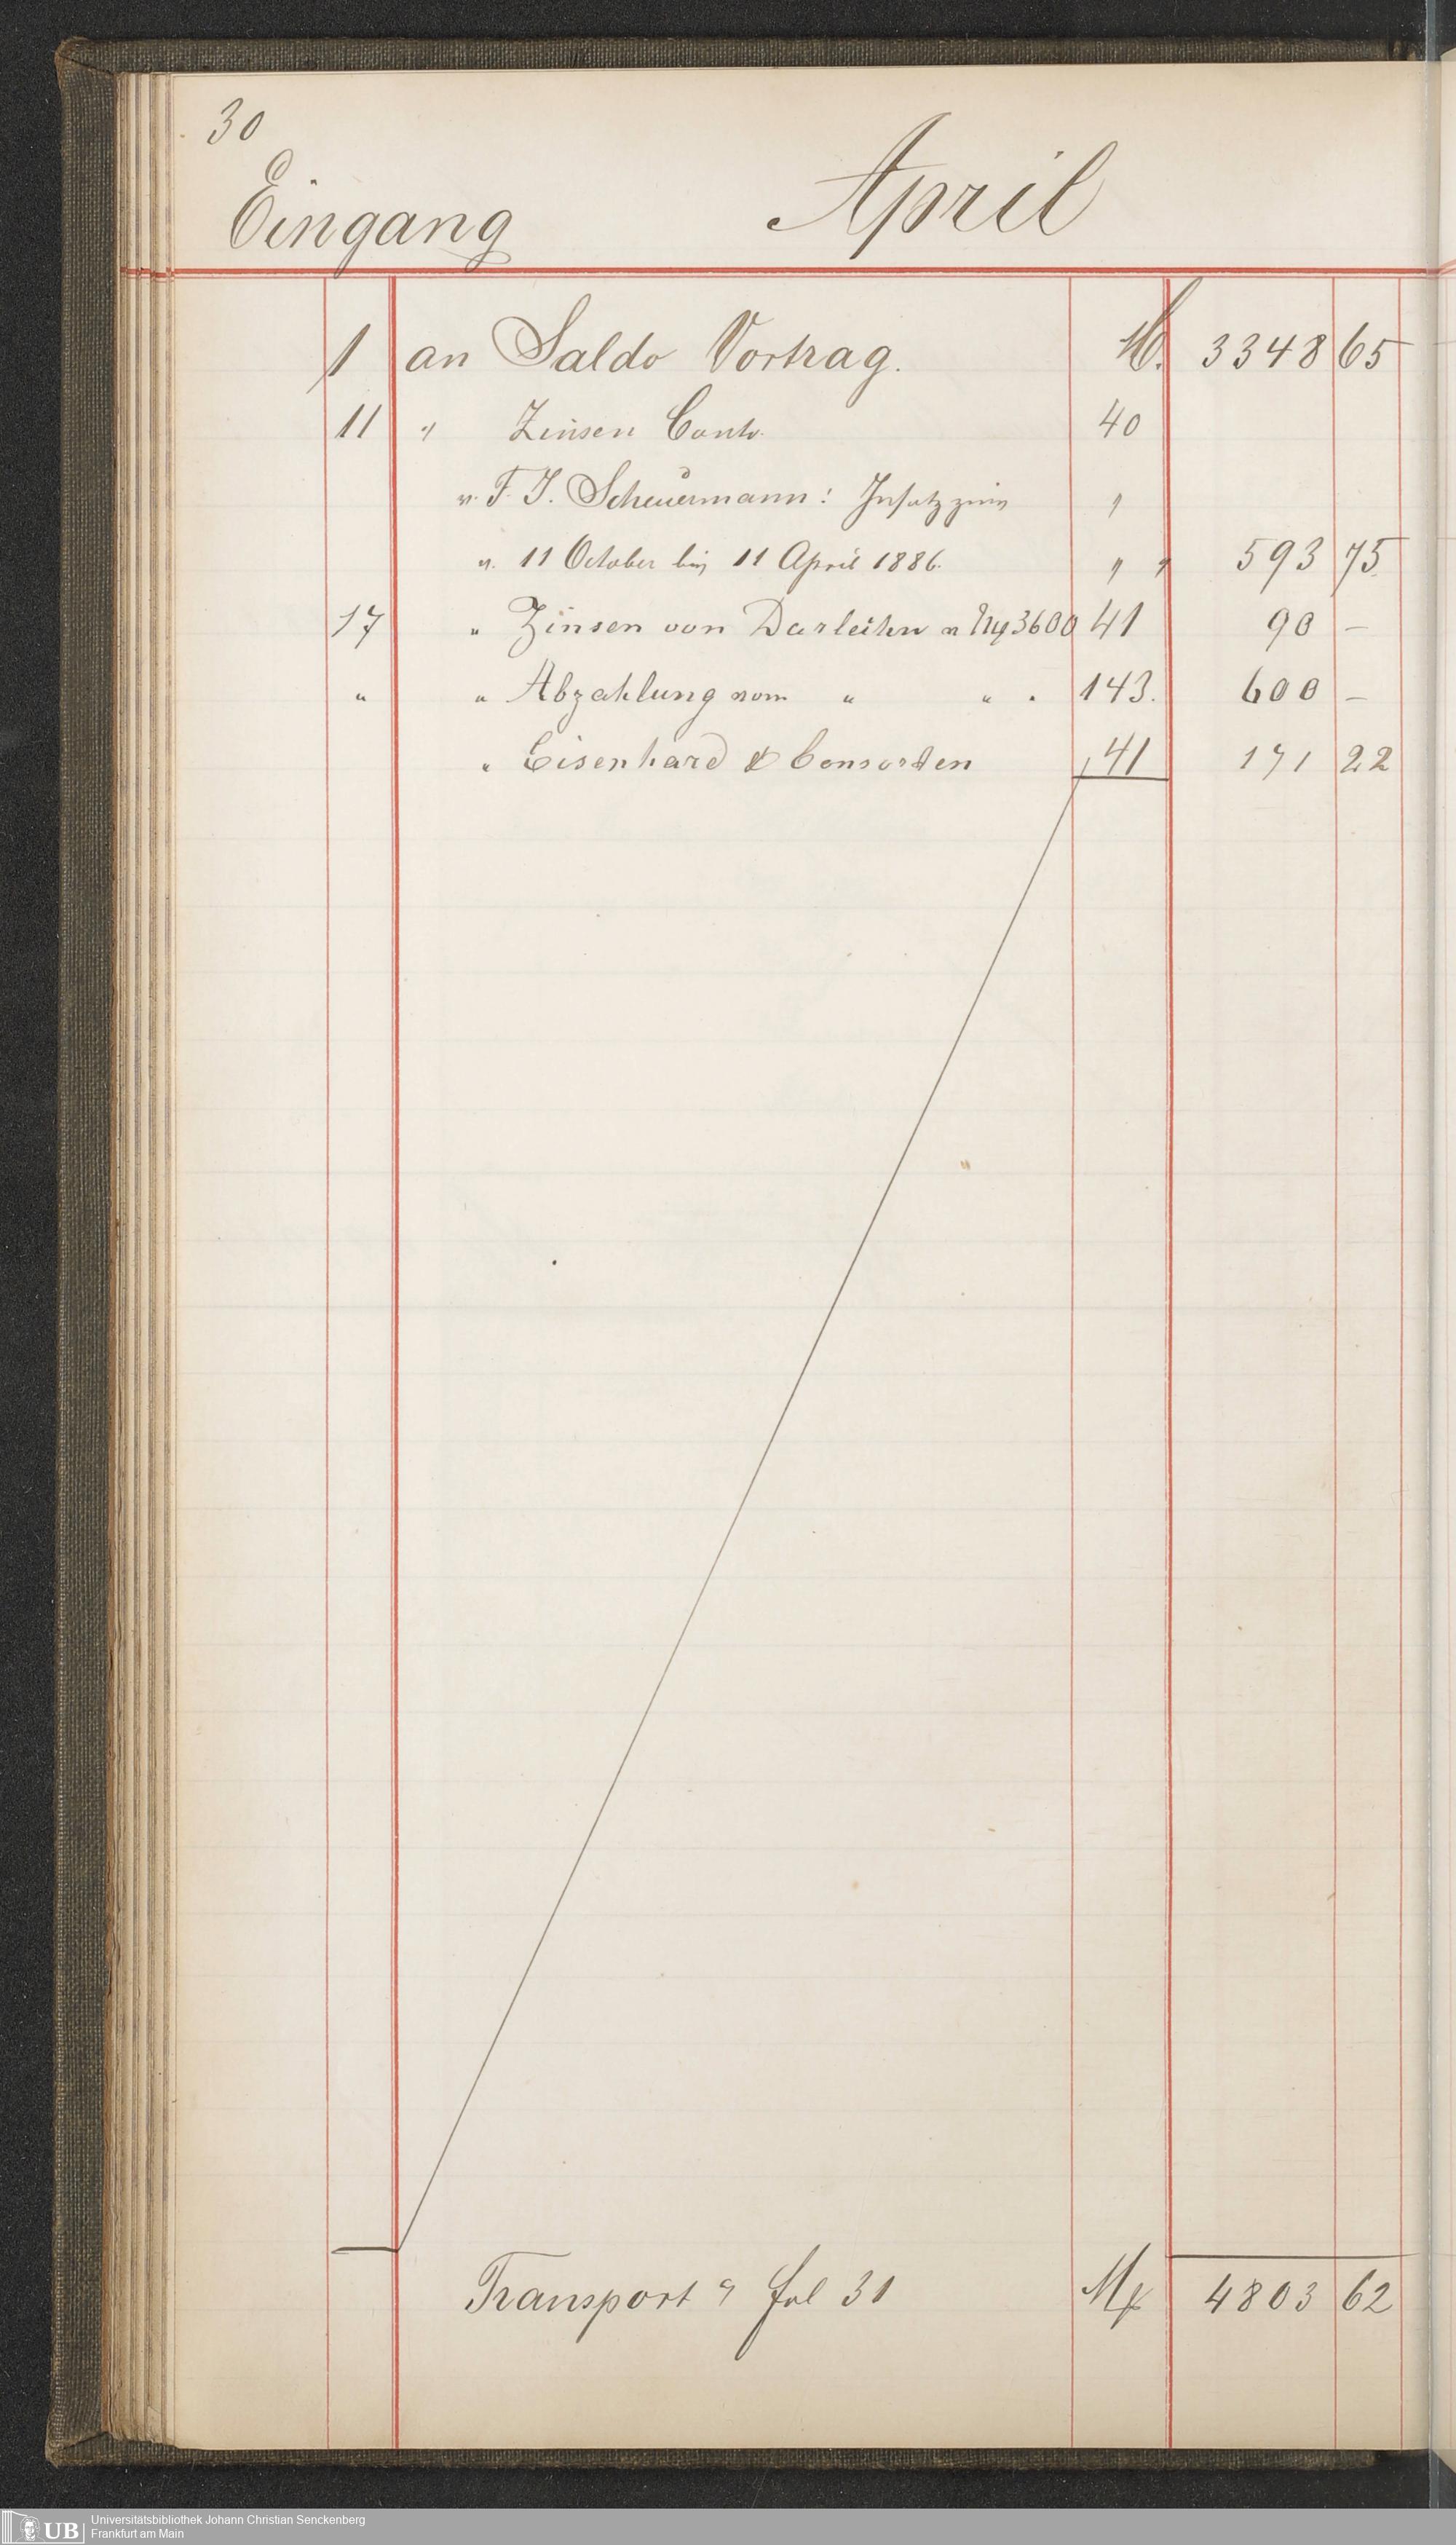 30
Eingang April
1 an Saldo Vortrag. M. 3348 65
11 " Zinsen Conto 40
v. F. J. Scheuermann: Insatzzins "
v. 11 October bis 11 April 1886. " " 593 75
17 " Zinsen von Darleihn v Mk 3600 41 90 –
" " Abzahlung vom " " . 143. 600 –
" Eisenhard & Consorten 41 171 22
Transport a fol 31 Mk 4803 62
UB Universitätsbibliothek Johann Christian Senckenberg
Frankfurt am Main